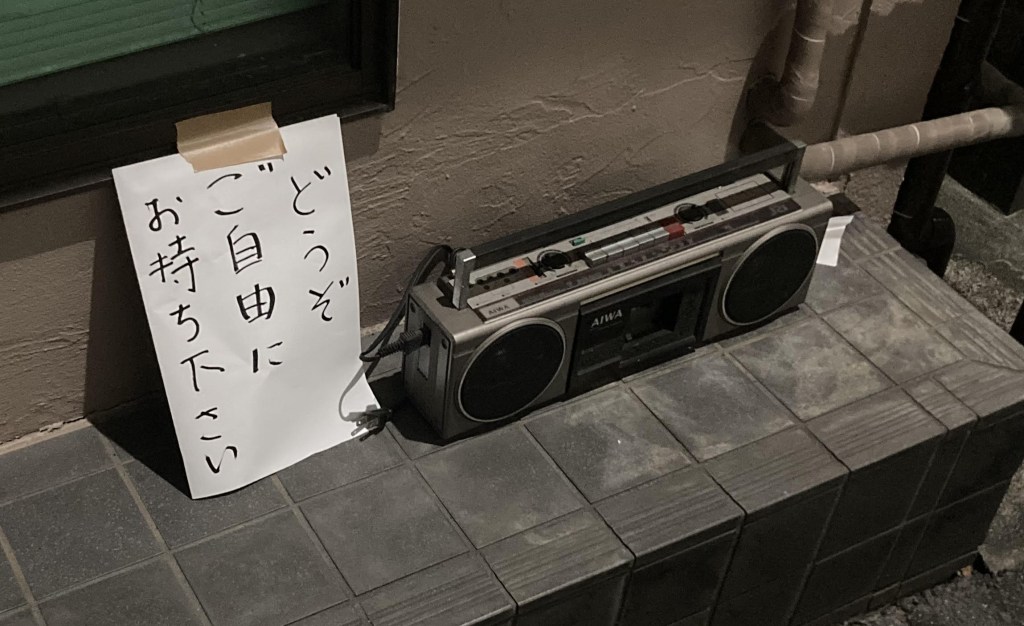 どうぞ
ご自由に
お持ち下さい
AIWA
AIWA